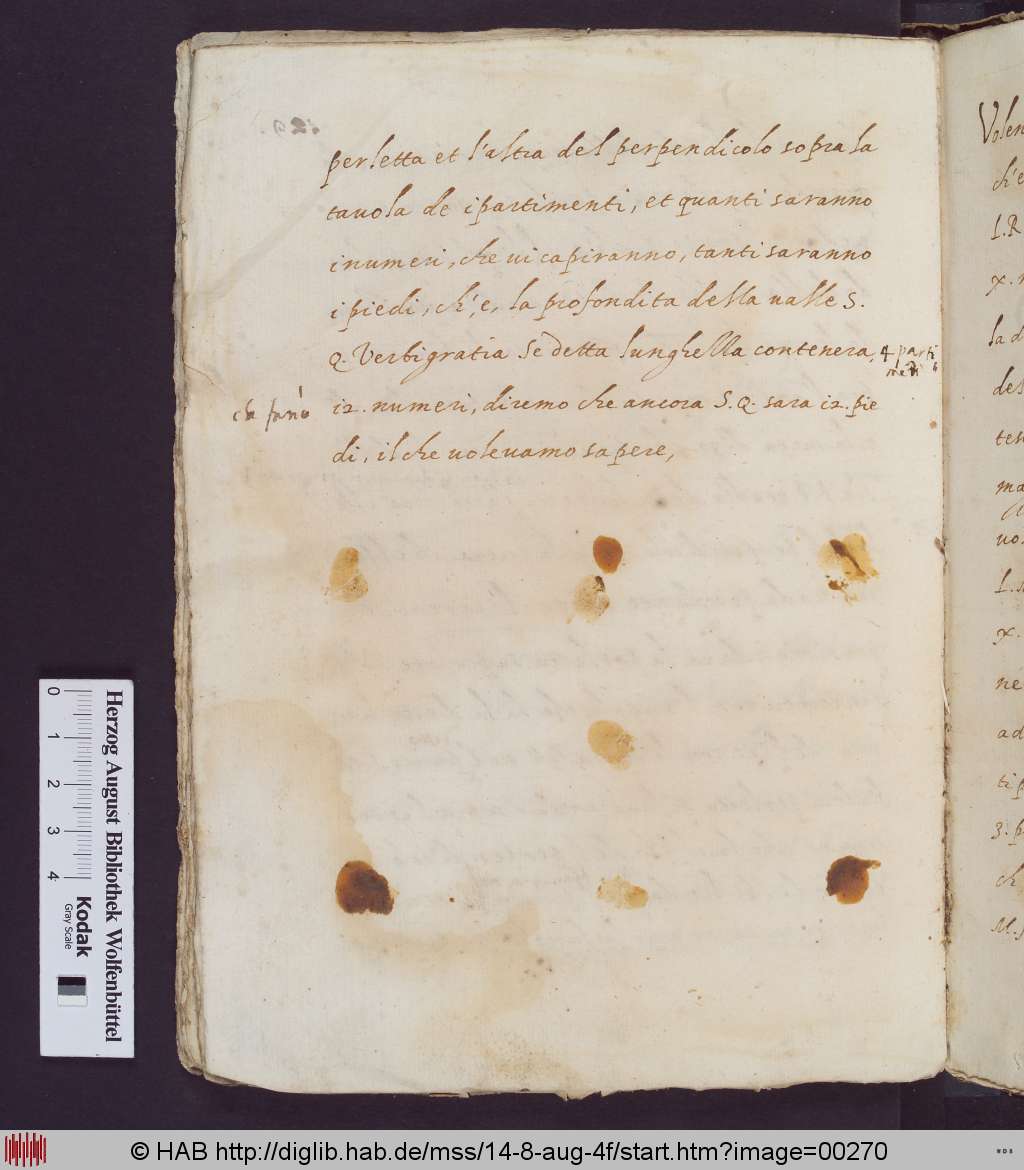 perletta et l'altra del perpendicolo sopra la
tavola de i partimenti, et quanti saranno
i numeri, che ui capiranno, tanti saranno
i piedi, ch'e, la profondita della ualle S.
Q. Verbigratia se detta lunghella contenera, 4 parti
meti
ch fano 12. numeri, diremo che ancora S.Q. sara 12. pie
di, il che uoleuamo sapere,
Volen
ch'e
la d
des
ma
uo
ne
ad
ti p
3. p
ch
M.
0 1 2 3 4
Herzog August Bibliothek Wolfenbüttel
Kodak
Gray Scale
© HAB http://diglib.hab.de/mss/14-8-aug-4f/start.htm?image=00270